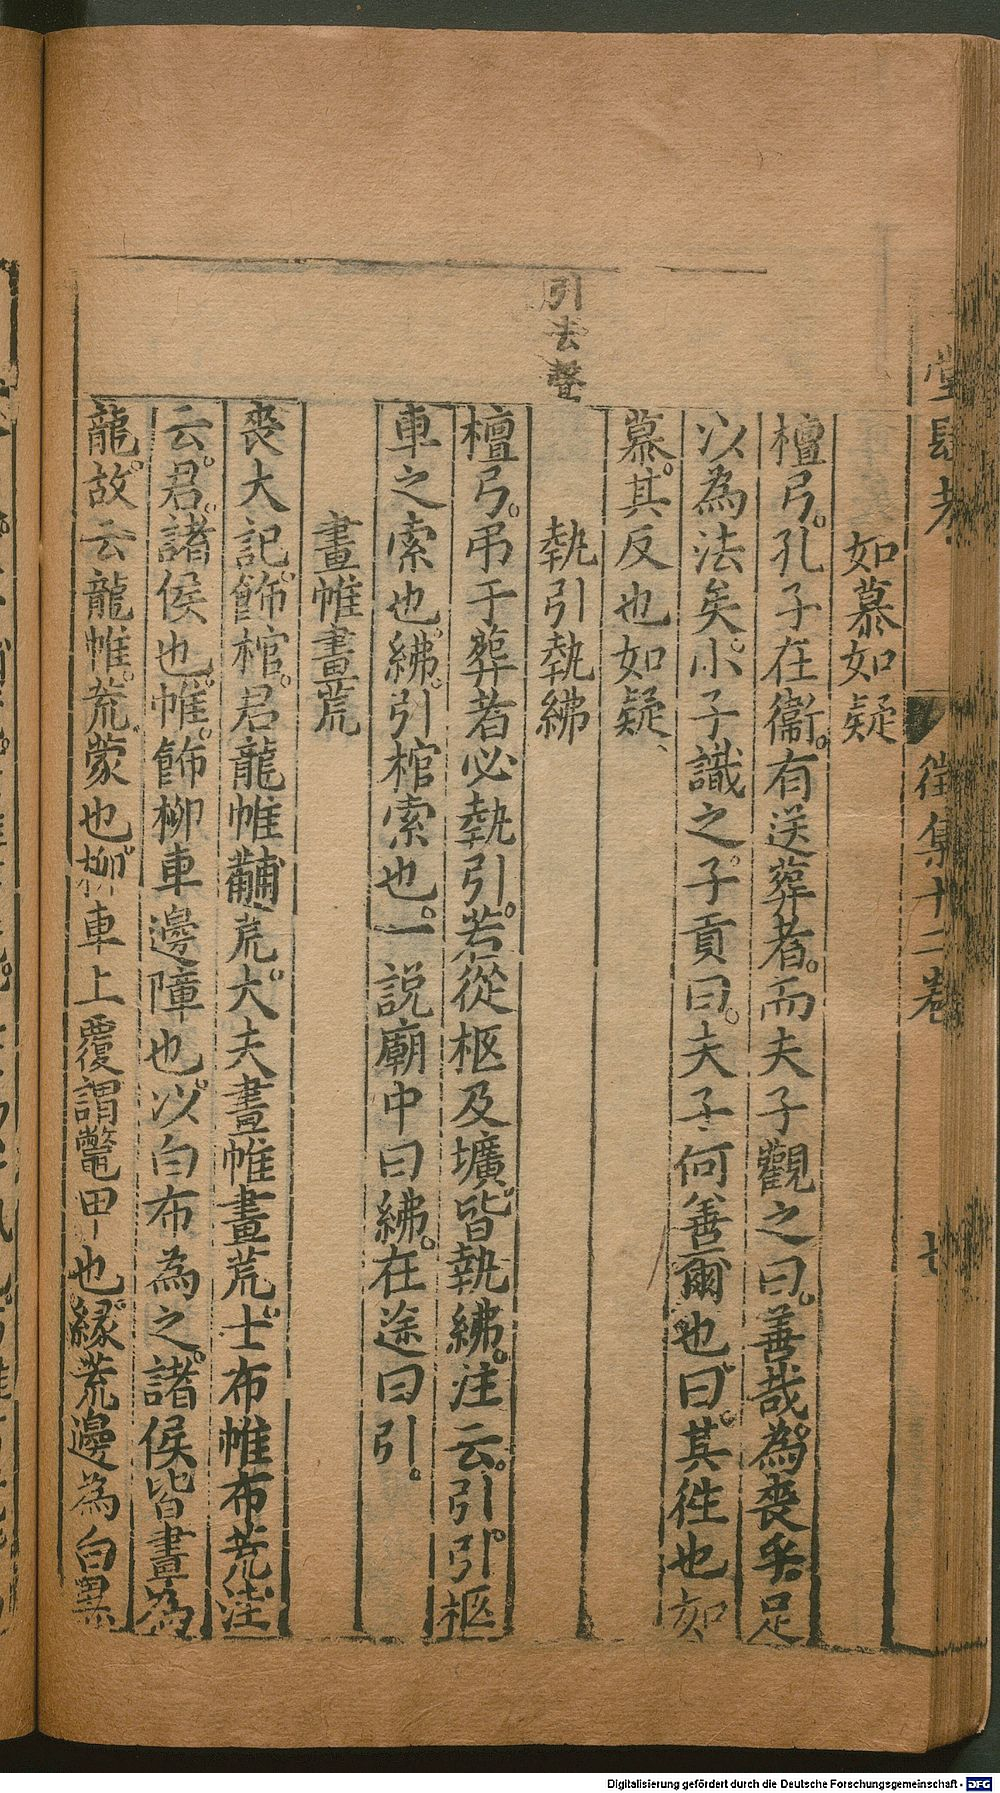 堂肆考 徵集十二卷 七
如慕如疑
檀弓。孔子在衞。有送葬者。而夫子觀之曰。善哉為喪乎足
以為法矣。小子識之。子貢曰。夫子何善爾也。曰。其徃也如
慕。其反也如疑、
引去聲
執引執紼
檀弓。弔于葬者必執引。若從柩及壙。皆執紼。注云。引。引柩
車之索也。紼。引棺索也。一說廟中曰紼。在途曰引。
畫帷畫荒
喪大記。飾棺。君龍帷黼荒。大夫畫帷畫荒。士布帷布荒。注
云。君。諸侯也。帷。飾柳車邊障也。以白布為之。諸侯皆畫為
龍。故云龍帷。荒。蒙也。柳車上覆謂鼈甲也。緣荒邊為白黑
Digitalisierung gefördert durch die Deutsche Forschungsgemeinschaft - DFG